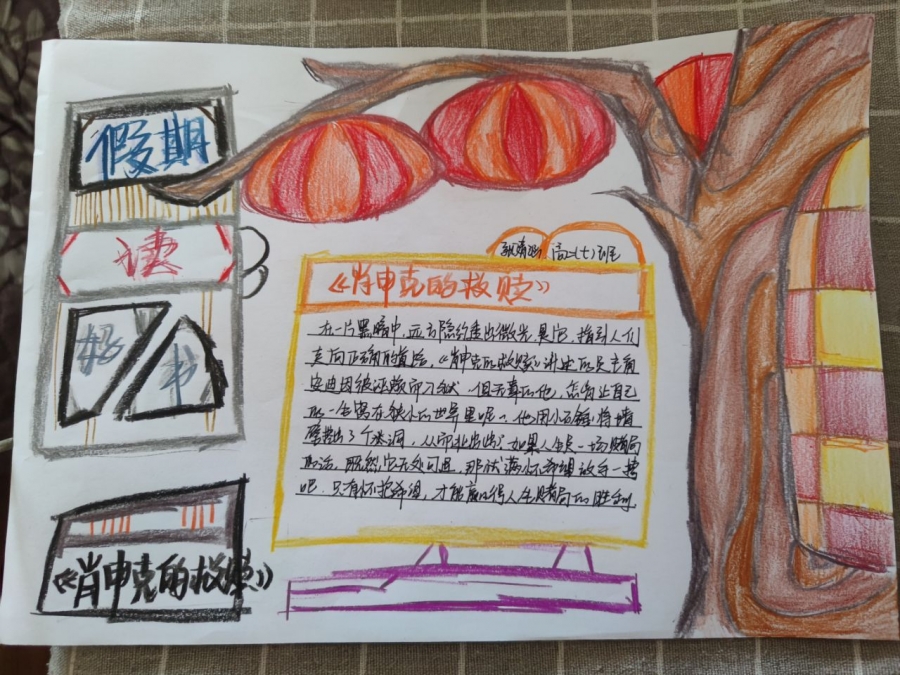 假期
读
好书
《肖申克的救赎》
高二(七)班
《肖申克的救赎》
在一片黑暗中,远方隐约透出微光,是它,指引人们
走向正确的道路。《肖申克的救赎》讲述的是主角
安迪因被诬赖而入狱,但无辜的他,怎肯让自己
的一生窝在狭小的世界里呢。他用小石锤将墙
壁凿出了个大洞,从而逃出如果人生是一场赌局
的话,既然它无处可逃,那就满怀希望放手一搏
吧,只有怀抱希望,才能赢得人生赌局的胜利